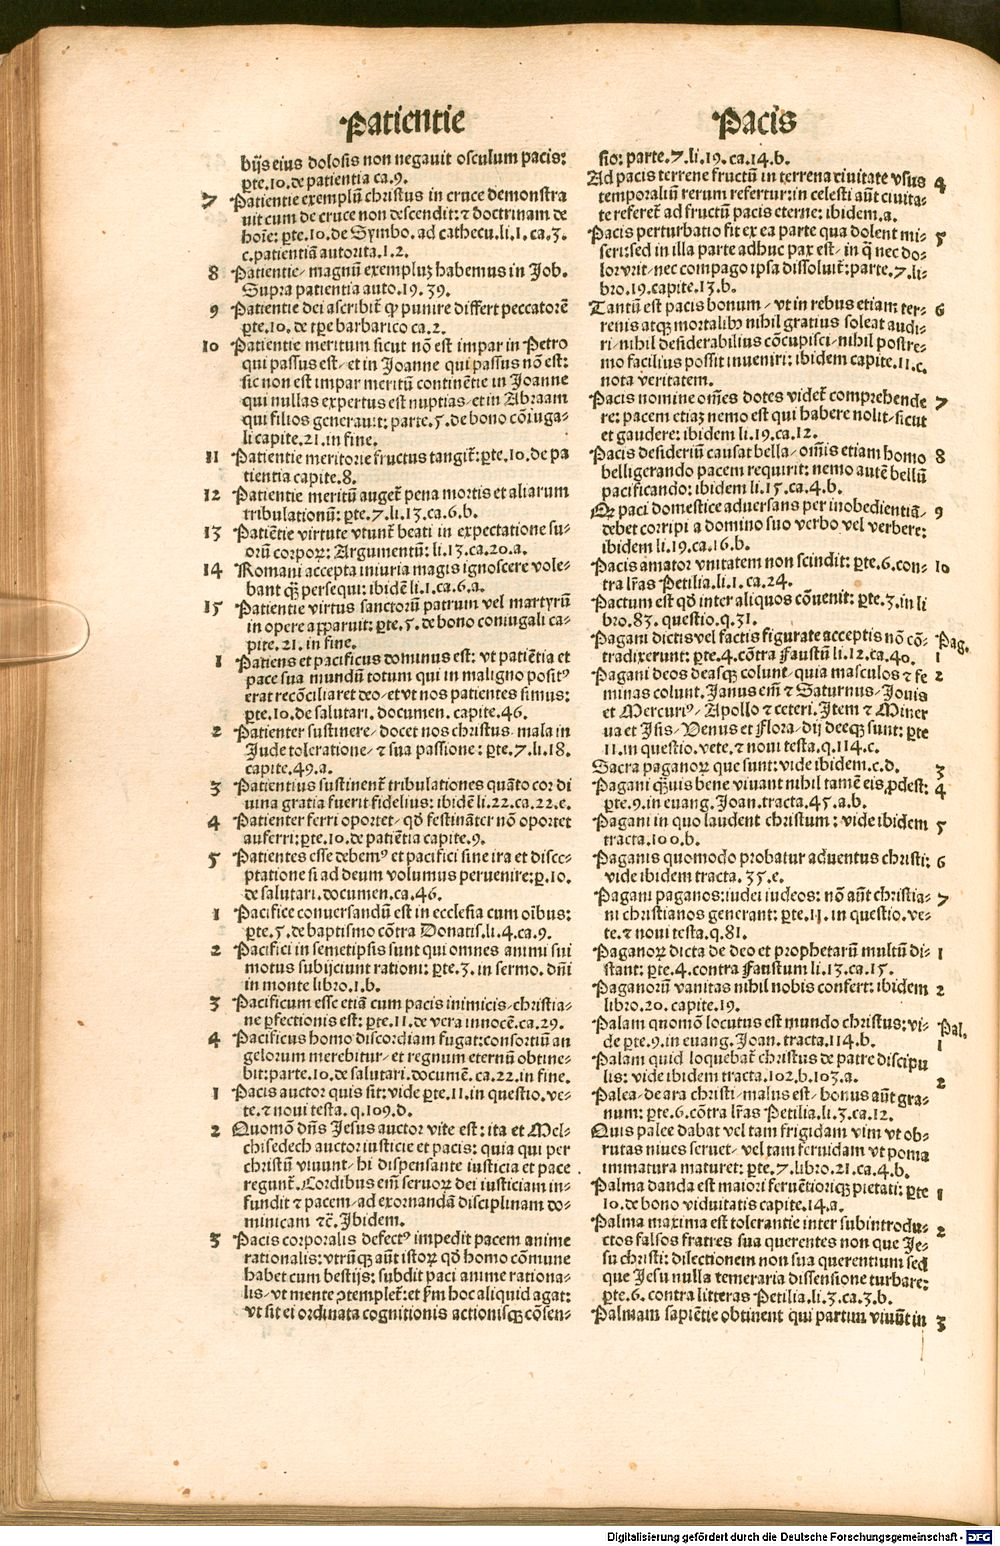 Patientie
bijs eius dolosis non negauit osculum pacis:
ꝑte.10.de patientia ca.9.
7 Patientie exemplũ christus in cruce demonstra
uit cum de cruce non descendit: ⁊ doctrinam de
hoĩe: ꝑte.10.de Symbo. ad cathecu.li.1.ca.3.
c.patientiã autorita.1.2.
8 Patientie/ magnũ exempluʒ habemus in Job.
Supra patientia auto.19.39.
9 Patientie dei ascribit̃ ꝙ punire differt peccatorẽ
ꝑte.10. de tꝑe barbarico ca.2.
10 Patientie meritum sicut nõ est impar in Petro
qui passus est/ et in Joanne qui passus nõ est:
sic non est impar meritũ continẽtie in Joanne
qui nullas expertus est nuptias/ et in Abraam
qui filios generauit: parte.5.de bono cõiuga⸗
li capite.21.in fine.
11 Patientie meritorie fructus tangit̃: ꝑte.10.de pa
tientia capite.8.
12 Patientie meritũ auget̃ pena mortis et aliarum
tribulationũ: ꝑte.7.li.13.ca.6.b.
13 Patiẽtie virtute vtunt̃ beati in expectatione su⸗
orũ corpoꝝ: Argumentũ: li.13.ca.20.a.
14 Romani accepta iniuria magis ignoscere vole⸗
bant ꝙ̃ persequi: ibidẽ li.1.ca.6.a.
15 Patientie virtus sanctorũ patrum vel martyrũ
in opere apparuit: ꝑte.5.de bono coniugali ca⸗
pite.21.in fine.
1 Patiens et pacificus dominus est: vt patiẽtia et
pace sua mundũ totum qui in maligno positꝰ
erat recõciliaret deo/ et vt nos patientes simus:
ꝑte.10.de salutari.documen. capite.46.
2 Patienter sustinere/ docet nos christus mala in
Jude toleratione/ ⁊ sua passione: ꝑte.7.li.18.
capite.49.a.
3 Patientius sustinent̃ tribulationes quãto cor di
uina gratia fuerit fidelius: ibidẽ li.22.ca.22.e.
4 Patienter ferri oportet/ qđ festinãter nõ oportet
auferri: ꝑte.10.de patiẽtia capite.9.
5 Patientes esse debemꝰ et pacifici sine ira et disce⸗
ptatione si ad deum volumus peruenire: ꝑ.10.
de salutari.documen.ca.46.
1 Pacifice conuersandũ est in ecclesia cum oĩbus:
ꝑte.5.de baptismo cõtra Donatis.li.4.ca.9.
2 Pacifici in semetipsis sunt qui omnes animi sui
motus subijciunt rationi: ꝑte.3.in sermo. dñi
in monte libro.1.b.
3 Pacificum esse etiã cum pacis inimicis/ christia⸗
ne ꝑfectionis est: ꝑte.11.de vera innocẽ.ca.29.
4 Pacificus homo discordiam fugat: consortiũ an
gelorum merebitur/ et regnum eternũ obtine⸗
bit: parte.10.de salutari.documẽ.ca.22.in fine.
1 Pacis auctor quis sit: vide ꝑte.11.in questio.ve⸗
te.⁊ noui testa. q.109.d.
2 Quomõ dñs Jesus auctor vite est: ita et Mel⸗
chisedech auctor iusticie et pacis: quia qui per
christũ viuunt/ hi dispensante iusticia et pace
regunt̃. Cordibus eĩ seruoꝝ dei iusticiam in⸗
fundit ⁊ pacem/ ad exornandã disciplinam do⸗
minicam ⁊c̃. Ibidem.
3 Pacis corporalis defectꝰ impedit pacem anime
rationalis: vtrũqꝫ aũt istoꝝ qđ homo cõmune
habet cum bestijs: subdit paci anime rationa⸗
lis/ vt mente ꝯtemplet̃: et ẜm hoc aliquid agat:
vt sit ei ordinata cognitionis actionisqꝫ cõsen⸗
Pacis
sio: parte.7.li.19.ca.14.b.
Ad pacis terrene fructũ in terrena ciuitate vsus 4
temporaliũ rerum refertur: in celesti aũt ciuita⸗
te referet̃ ad fructũ pacis eterne: ibidem.a.
Pacis perturbatio fit ex ea parte qua dolent mi⸗ 5
seri: sed in illa parte adhuc pax est/ in q̃ nec do⸗
lor vrit/ nec compago ipsa dissoluit̃: parte.7.li⸗
bro.19.capite.13.b.
Tantũ est pacis bonum/ vt in rebus etiam ter⸗ 6
renis atqꝫ mortalibꝰ nihil gratius soleat audi⸗
ri/ nihil desiderabilius cõcupisci/ nihil postre⸗
mo facilius possit inueniri: ibidem capite.11.c.
nota veritatem.
Pacis nomine oẽs dotes videt̃ comprehende 7
re: pacem etiaʒ nemo est qui habere nolit/ sicut
et gaudere: ibidem li.19.ca.12.
Pacis desideriũ causat bella/ oĩs etiam homo 8
belligerando pacem requirit: nemo autẽ bellũ
pacificando: ibidem li.15.ca.4.b.
Qꝛ paci domestice aduersans per inobedientiã⸗ 9
debet corripi a domino suo verbo vel verbere:
ibidem li.19.ca.16.b.
Pacis amator vnitatem non scindit: ꝑte.6.con⸗ 10
tra lr̃as Petilia.li.1.ca.24.
Pactum est qđ inter aliquos cõuenit: ꝑte.3.in li
bro.83. questio.q.31.
Pagani dictis vel factis figurate acceptis nõ cõ⸗ Pag.
tradixerunt: ꝑte.4.cõtra Faustũ li.12.ca.40. 1
Pagani deos deasqꝫ colunt/ quia masculos ⁊ fe 2
minas colunt. Janus eĩ ⁊ Saturnus/ Jouis
et Mercuriꝰ/ Apollo ⁊ ceteri. Item ⁊ Miner
ua et Isis/ Venus et Flora/ dij deeqꝫ sunt: ꝑte
11.in questio.vete.⁊ noui testa.q.114.c.
Sacra paganoꝝ que sunt: vide ibidem.c.d. 3
Pagani qꝫuis bene viuant nihil tamẽ eis ꝓdest: 4
ꝑte.9.in euang.Joan.tracta.45.a.b.
Pagani in quo laudent christum: vide ibidem 5
tracta.100.b.
Paganis quomodo probatur aduentus christi: 6
vide ibidem tracta.35.e.
Pagani paganos: iudei iudeos: nõ aũt christia⸗ 7
ni christianos generant: ꝑte.11.in questio.ve⸗
te.⁊ noui testa.q.81.
Paganoꝝ dicta de deo et prophetarũ multũ di⸗ 1
stant: ꝑte.4.contra Faustum li.13.ca.15.
Paganorũ vanitas nihil nobis confert: ibidem 2
libro.20.capite.19.
Palam quomõ locutus est mundo christus: vi⸗ Pal.
de ꝑte.9.in euang.Joan.tracta.114.b. 1
Palam quid loquebat̃ christus de patre discipu
lis: vide ibidem tracta.102.b.103.a. 2
Palea/ de ara christi/ malus est/ bonus aũt gra⸗
num: ꝑte.6.cõtra lr̃as Petilia.li.3.ca.12.
Quis palee dabat vel tam frigidam vim vt ob⸗
rutas niues seruet/ vel tam feruidam vt poma
immatura maturet: ꝑte.7.libro.21.ca.4.b.
Palma danda est maiori feruẽtioriqꝫ pietati: ꝑte 1
10.de bono viduitatis capite.14.a.
Palma maxima est tolerantie inter subintrodu⸗ 2
ctos falsos fratres sua querentes non que Je⸗
su christi: dilectionem non sua querentium sed
que Jesu nulla temeraria dissensione turbare:
ꝑte.6.contra litteras Petilia.li.3.ca.3.b.
Palmam sapiẽtie obtinent qui partim viuũt in 3
Digitalisierung gefördert durch die Deutsche Forschungsgemeinschaft - DFG